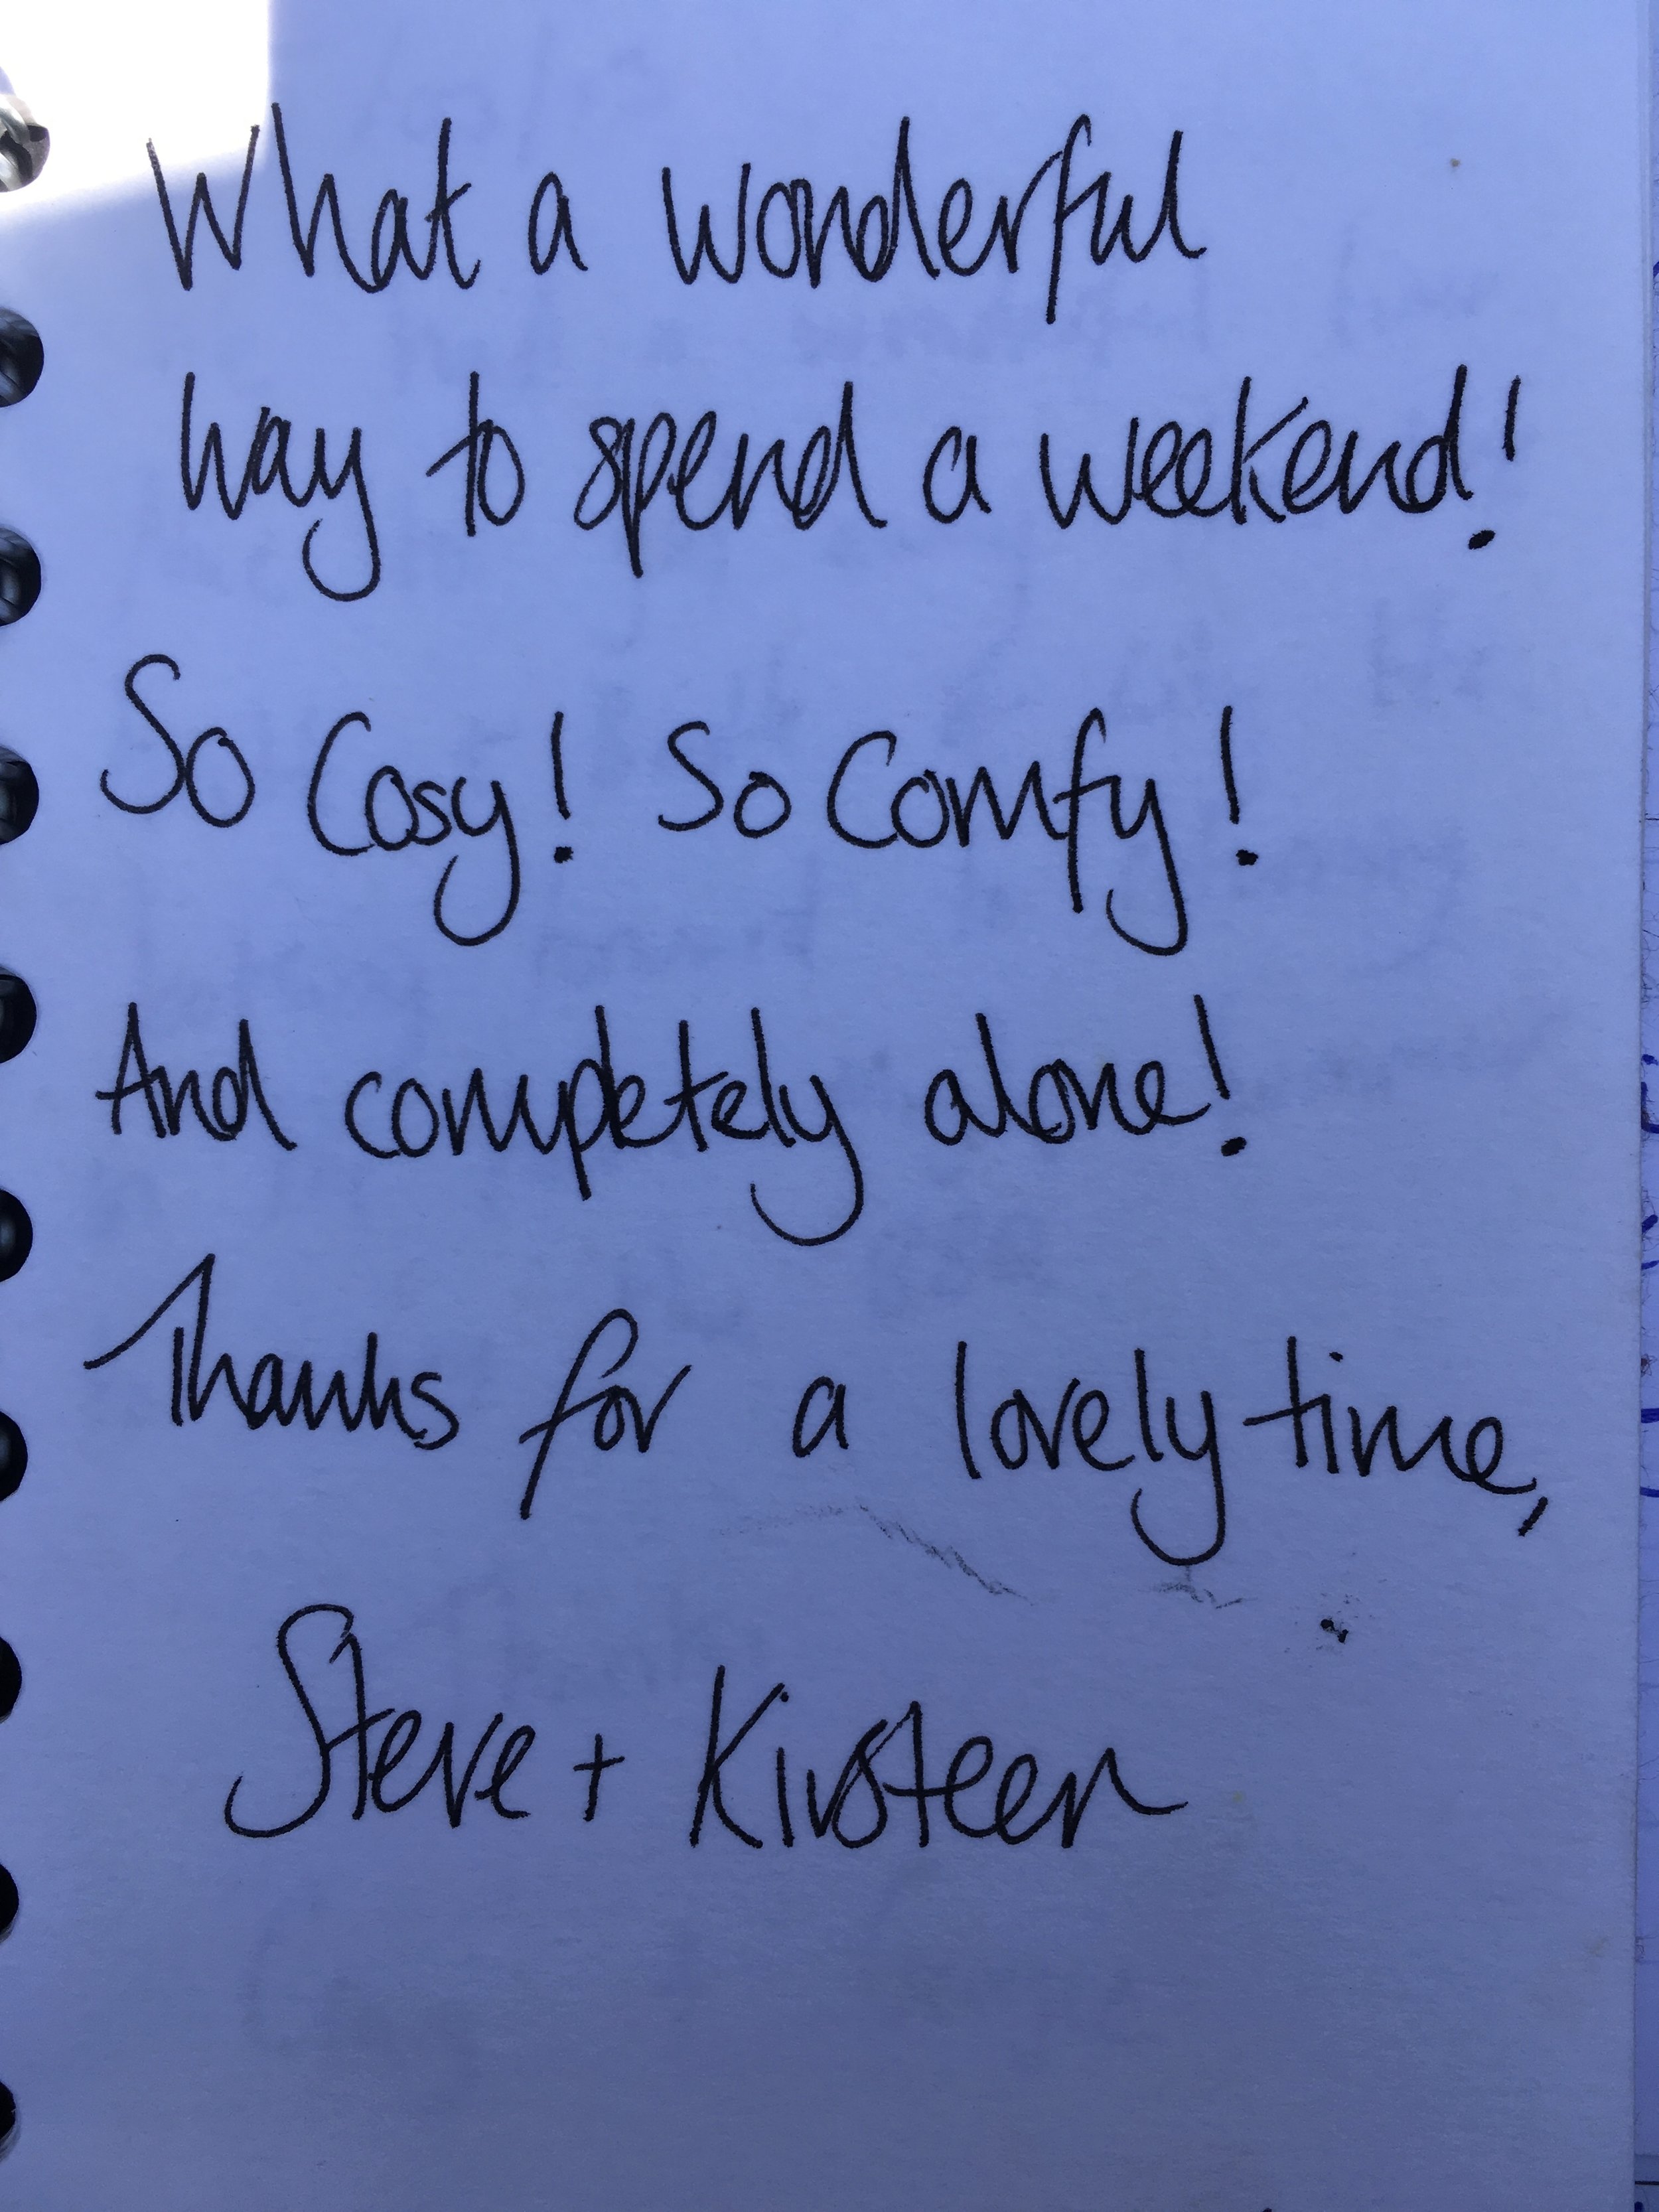 What a wonderful
way to spend a weekend!
So Cosy! So Comfy!
And completely alone!
Thanks for a lovely time,
Steve + Kirsteen